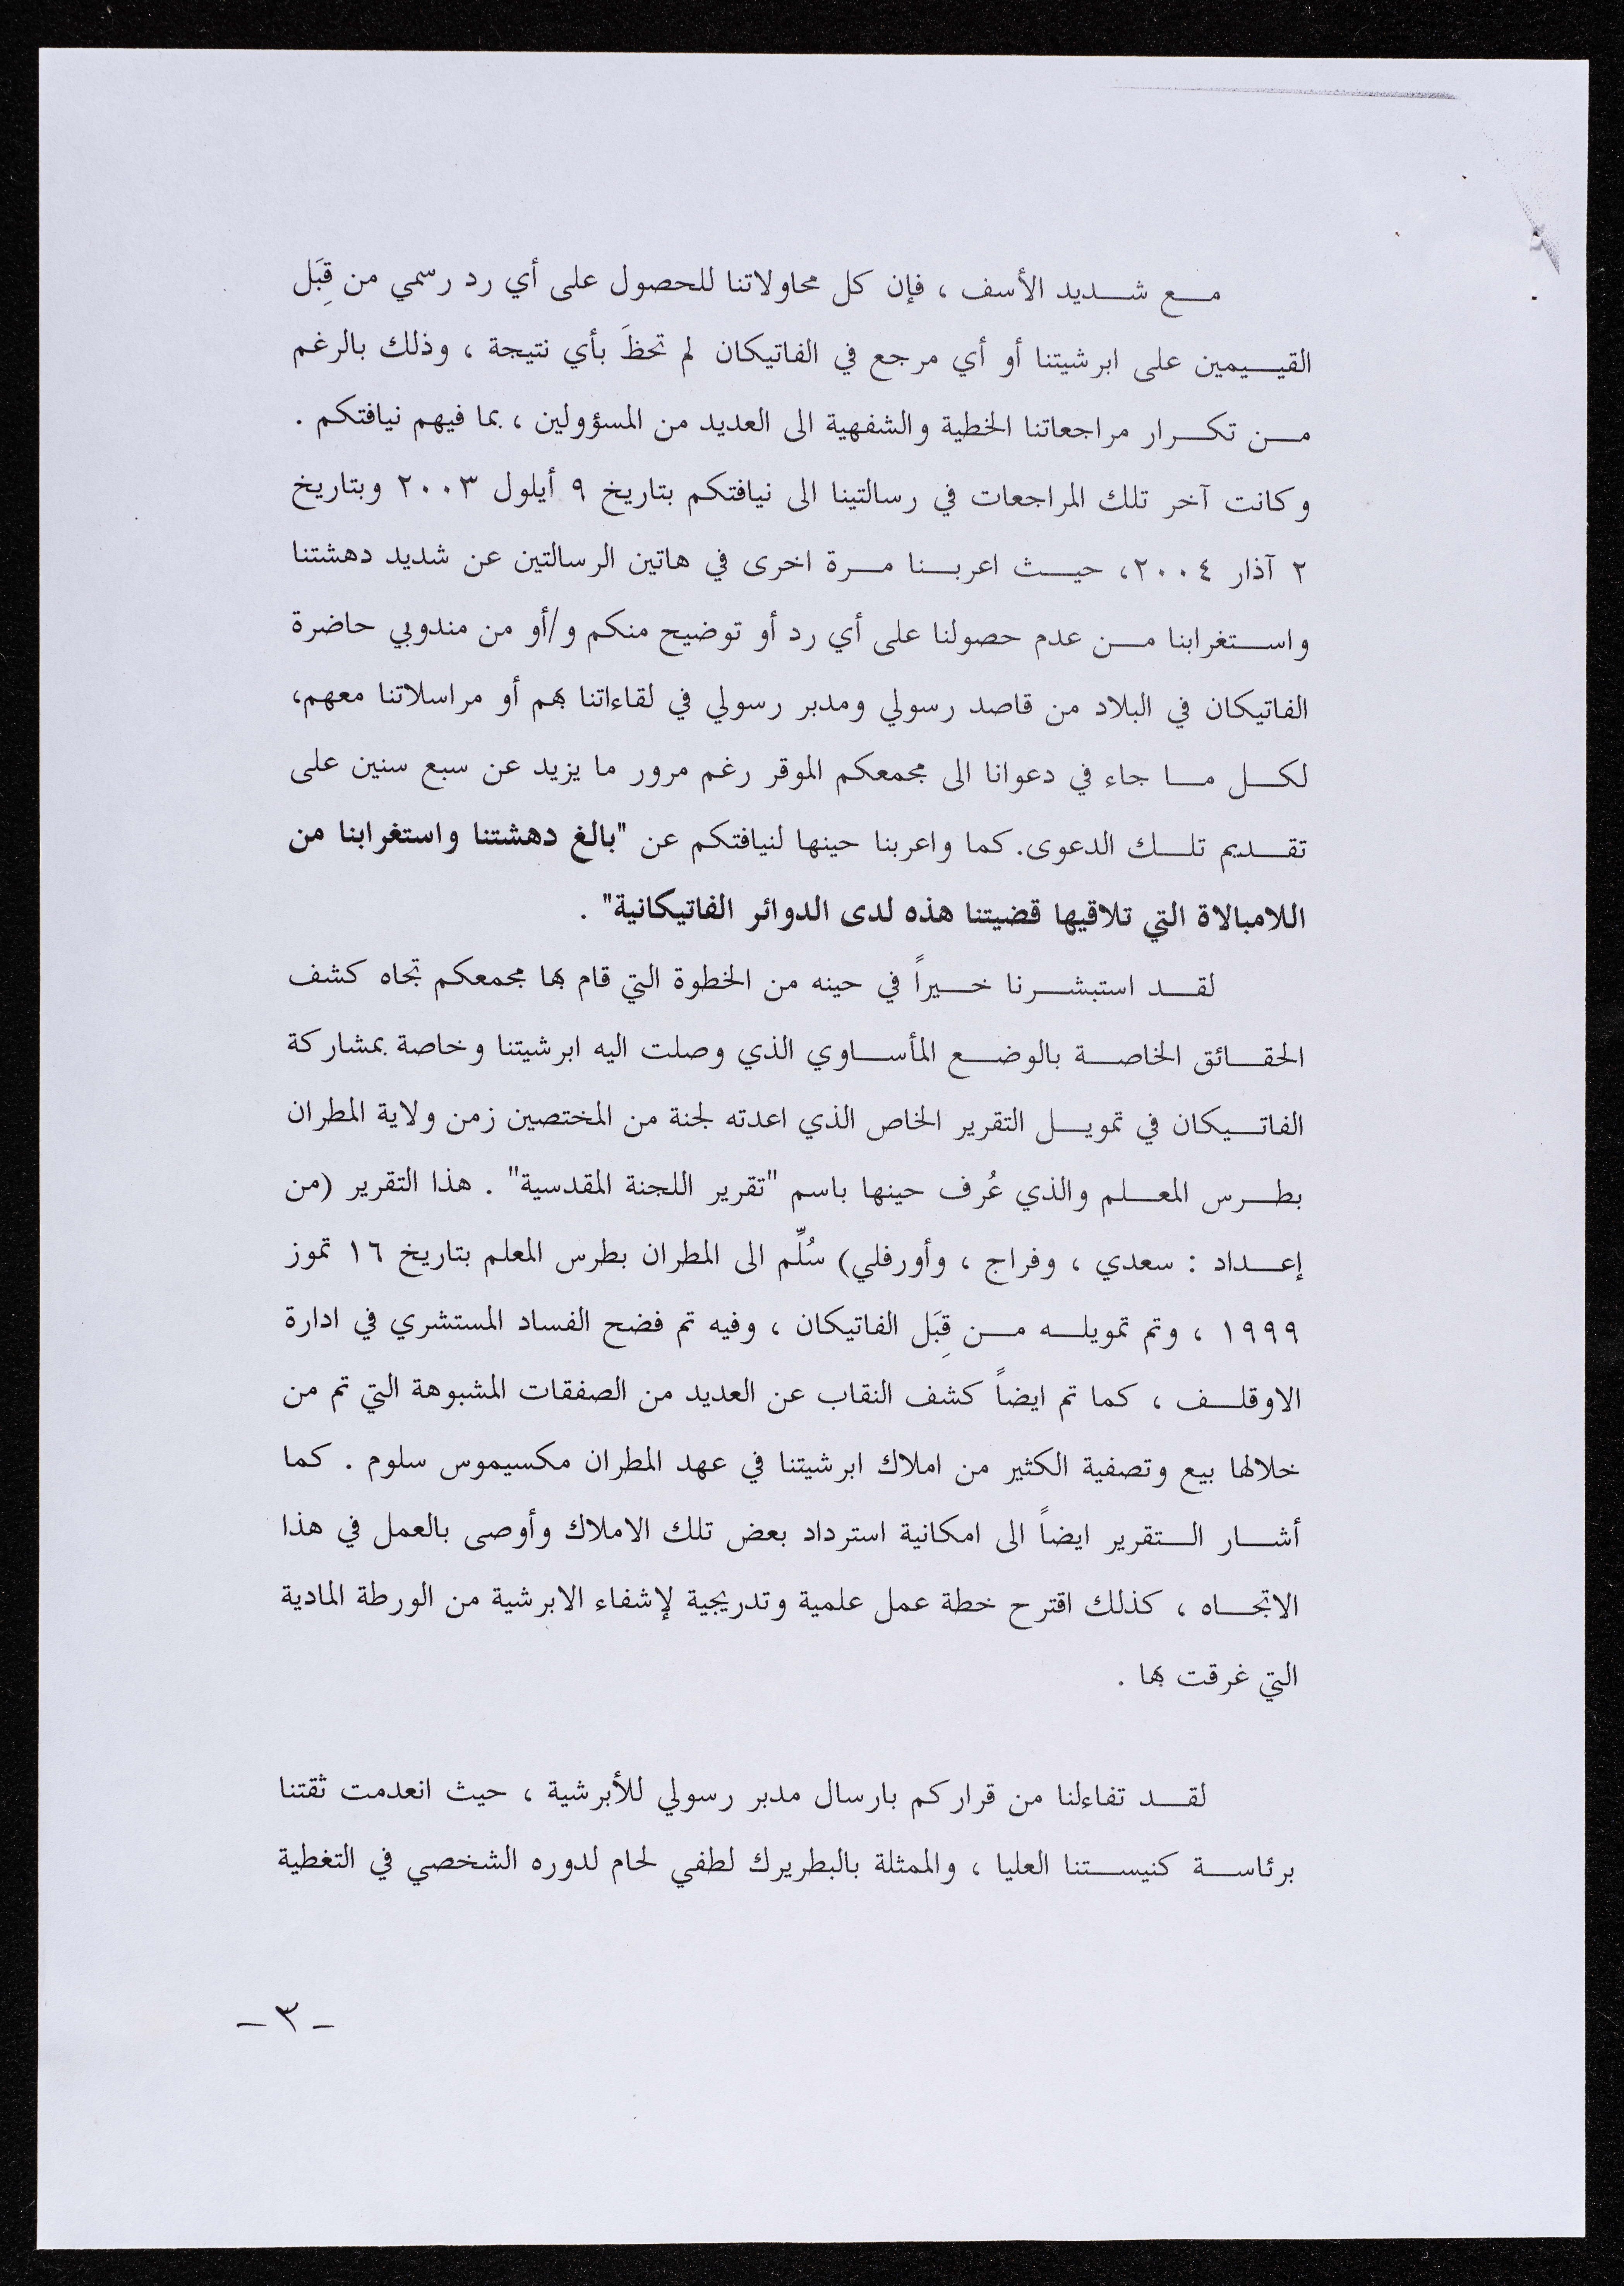 مع شديد الأسف ، فإن كل محاولاتنا للحصول على أي رد رسمي من قِبَل
القيـيمين على ابرشيتنا أو أي مرجع في الفاتيكان لم تحظَ بأي نتيجة ، وذلك بالرغم
من تكرار مراجعاتنا الخطية والشفهية الى العديد من المسؤولين ، بما فيهم نيافتكم .
وكانت آخر تلك المراجعات في رسالتينا الى نيافتكم بتاريخ ٩ أيلول ٢٠٠٣ وبتاريخ
٢ آذار ٢٠٠٤، حيث اعربنا مرة اخرى في هاتين الرسالتين عن شديد دهشتنا
واستغرابنا من عدم حصولنا على أي رد أو توضيح منكم و/أو من مندوبي حاضرة
الفاتيكان في البلاد من قاصد رسولي ومدبر رسولي في لقاءاتنا بهم أو مراسلاتنا معهم،
لكل ما جاء في دعوانا الى مجمعكم الموقر رغم مرور ما يزيد عن سبع سنين على
تقديم تلك الدعوى. كما واعربنا حينها لنيافتكم عن "بالغ دهشتنا واستغرابنا من
اللامبالاة التي تلاقيها قضيتنا هذه لدى الدوائر الفاتيكانية" .
لقد استبشرنا خيراً في حينه من الخطوة التي قام بها مجمعكم تجاه كشف
الحقائق الخاصة بالوضع المأساوي الذي وصلت اليه ابرشيتنا وخاصة بمشاركة
الفاتيكان في تمويل التقرير الخاص الذي اعدته لجنة من المختصين زمن ولاية المطران
بطرس المعلم والذي عُرف حينها باسم "تقرير اللجنة المقدسية" . هذا التقرير (من
إعداد : سعدي ، وفراج ، وأورفلي) سُلِّم الى المطران بطرس المعلم بتاريخ ١٦ تموز
١٩٩٩ ، وتم تمويله من قِبَل الفاتيكان ، وفيه تم فضح الفساد المستشري في ادارة
الاوقلف ، كما تم ايضاً كشف النقاب عن العديد من الصفقات المشبوهة التي تم من
خلالها بيع وتصفية الكثير من املاك ابرشيتنا في عهد المطران مكسيموس سلوم . كما
أشار التقرير ايضاً الى امكانية استرداد بعض تلك الاملاك وأوصى بالعمل في هذا
الاتجاه ، كذلك اقترح خطة عمل علمية وتدريجية لإشفاء الابرشية من الورطة المادية
التي غرقت بها .
لقد تفاءلنا من قراركم بارسال مدبر رسولي للأبرشية ، حيث انعدمت ثقتنا
برئاسة كنيستنا العليا ، والممثلة بالبطريرك لطفي لحام لدوره الشخصي في التغطية
-٣-